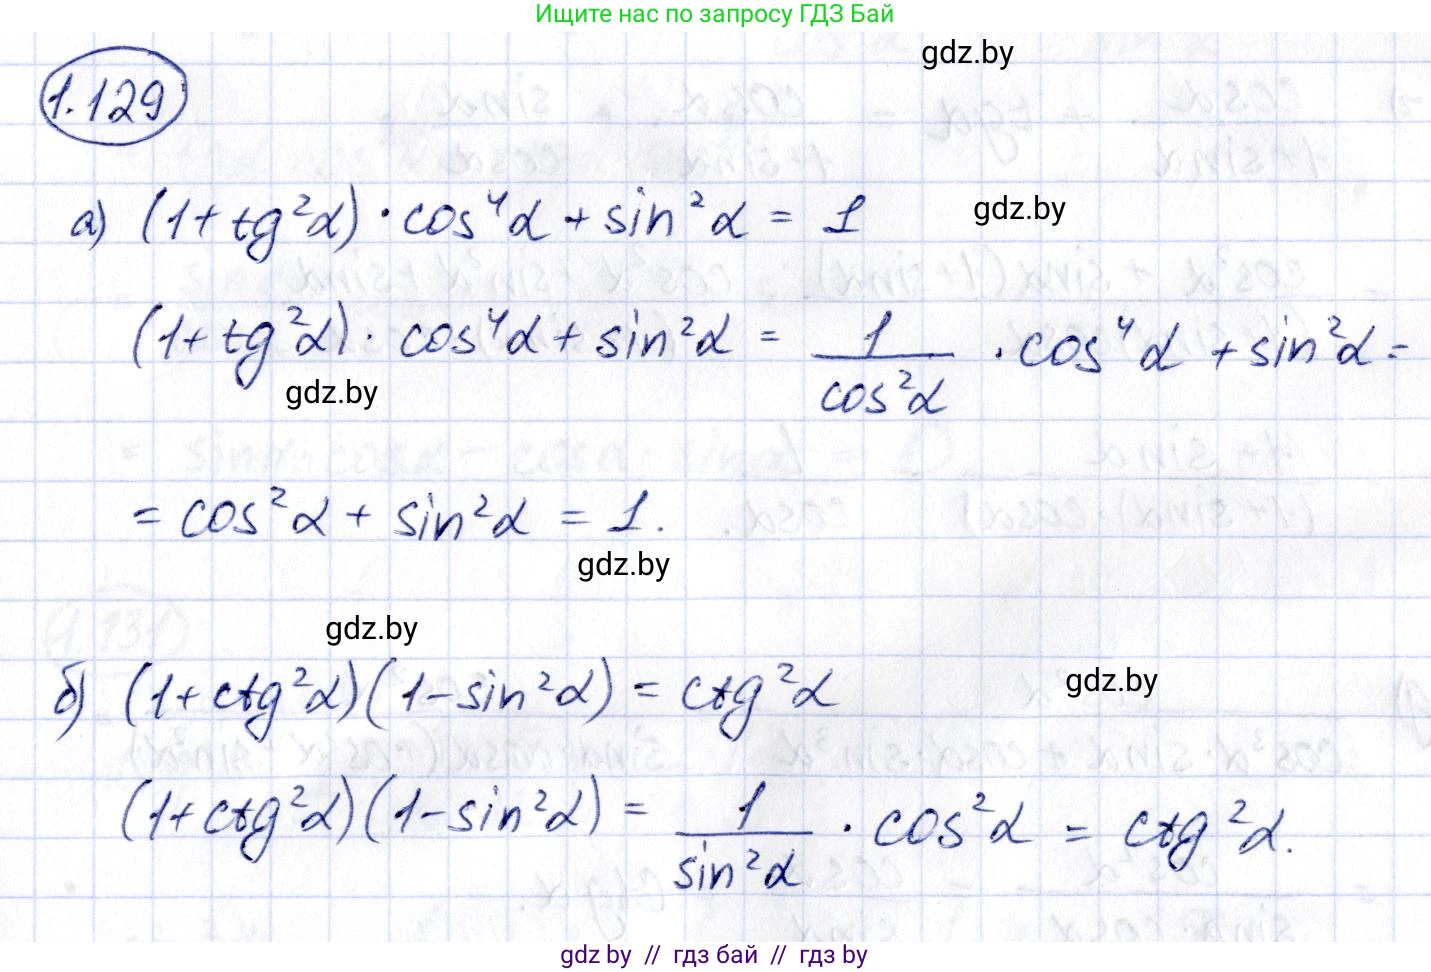 Ищите нас по запросу ГДЗ Бай
gdz.by
1.129
а) (1+tg²α)·cos⁴α+sin²α = 1
gdz.by
(1+tg²α)·cos⁴α+sin²α = 1/cos²α ·cos⁴α +sin²α =
gdz.by
= cos²α + sin²α = 1.
gdz.by
gdz.by
б) (1+ctg²α)(1-sin²α) = ctg²α
gdz.by
(1+ctg²α)(1-sin²α) = 1/sin²α · cos²α = ctg²α.
gdz by // гдз бай // gdz by